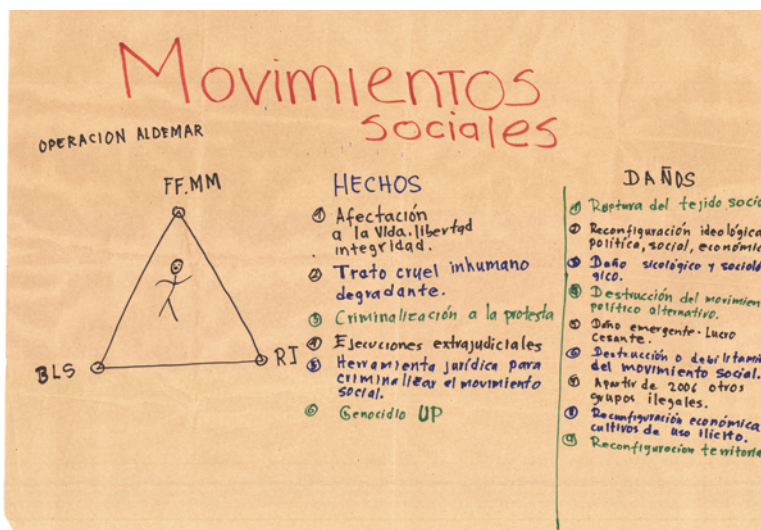 Movimientos
sociales
OPERACION ALDEMAR
FF.MM
BLS
RJ
HECHOS
① Afectación
a la vida. libertad
integridad.
② Trato cruel inhumano
degradante.
③ Criminalización a la protesta
④ Ejecuciones extrajudiciales
⑤ Herramienta jurídica para
criminalizar el movimiento
social.
⑥ Genocidio UP
DAÑOS
① Ruptura del tejido socia
② Reconfiguración ideológica
política, social, económic
③ Daño sicológico y socioló
gico.
④ Destrucción del movimien
político alternativo.
⑤ Daño emergente. Lucro
cesante.
⑥ Destrucción o debilitami
del movimiento social.
⑦ Apartir de 2006 otros
grupos ilegales.
⑧ Reconfiguración económica
cultivos de uso ilícito.
⑨ Reconfiguracion territoria